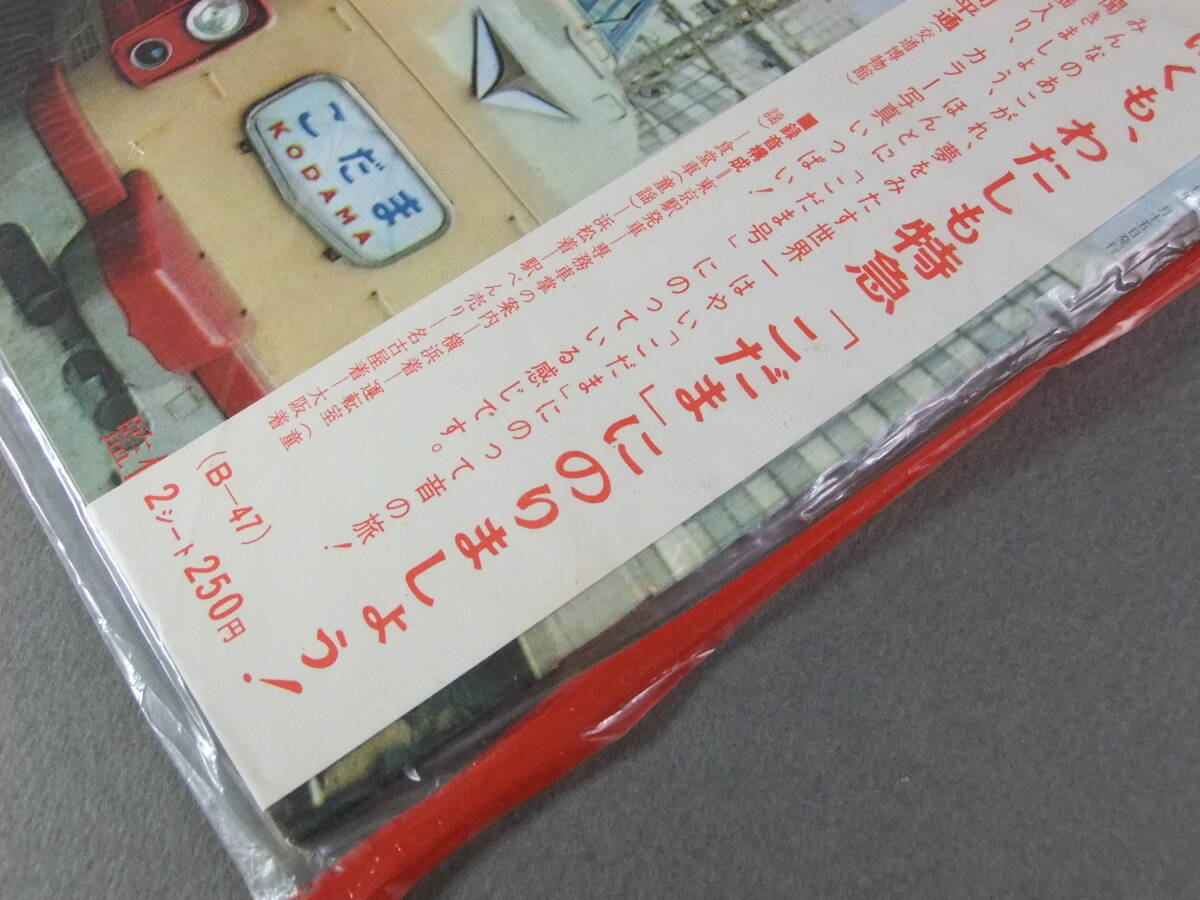 くも、わたしも特急「こだま」にのりましょう!
みんなのあこがれ、夢をみたす世界一はやい「こだま」にのって音の旅!
聞きましょう、ほんとに「こだま号」にのっている感じです。
入り、カラー写真いっぱい!
■録音構成―東京駅発車―専務車掌の案内―横浜着―運転室(童
謡)―食堂車(童謡)―浜松着―駅べん売り―名古屋着―大阪着
交通博物館)
(B—47)
2シート250円
こだま
KODAMA
監
月十五日発行